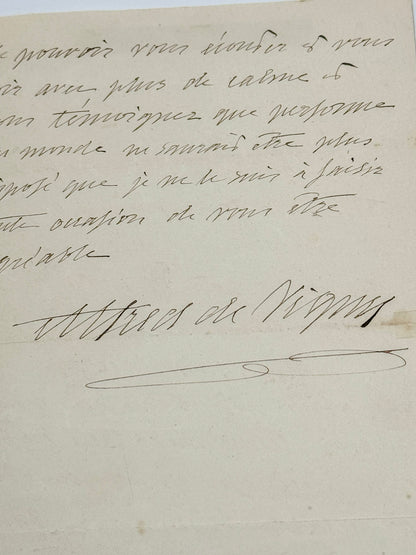 pouvoir vous écouter & vous
avec plus de calme &
témoignez que personne
monde ne saurait être plus
posé que je ne le suis à saisir
occasion de vous être
gréable
Alfred de Vigny